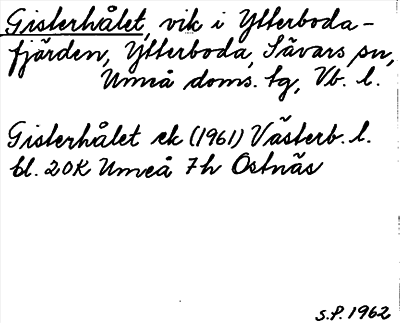 Gisterhålet, vik i Ytterboda-
fjärden, Ytterboda, Sävars sn,
Umeå doms. tg, Vb. l.
Gisterhålet ek (1961) Västerb. l.
bl. 20K Umeå 7h Ostnäs
S.P. 1962